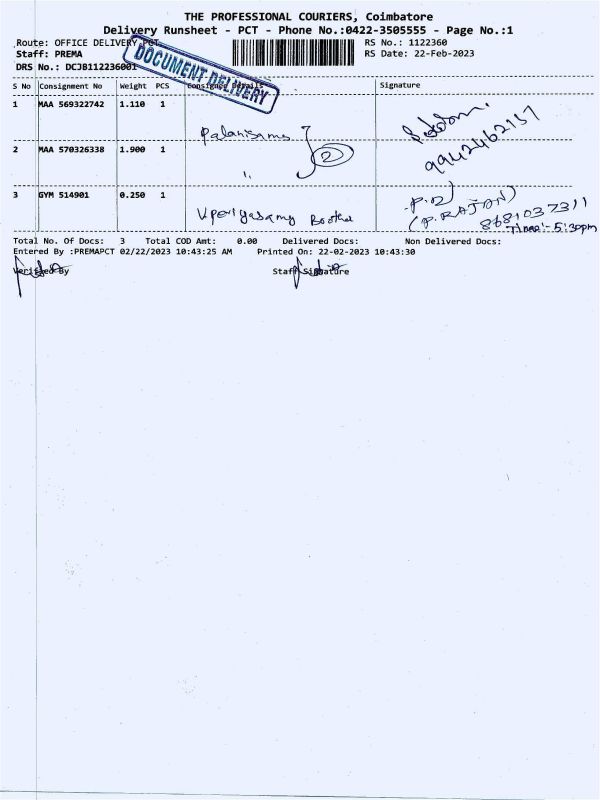 THE PROFESSIONAL COURIERS, Coimbatore
Delivery Runsheet - PCT - Phone No.:0422-3505555 - Page No.:1
Route: OFFICE DELIVERY PCT
RS No.: 1122360
Staff: PREMA
RS Date: 22-Feb-2023
DRS No.: DCJB112236001
DOCUMENT DELIVERY
S No Consignment No Weight PCS Consignee Details Signature
1 MAA 569322742 1.110 1
Palanisamy
9942462137
2 MAA 570326338 1.900 1
2
3 GYM 514901 0.250 1
(P.RAJAN)
8681037311
Time:- 5:30pm
Total No. Of Docs: 3 Total COD Amt: 0.00 Delivered Docs: Non Delivered Docs:
Entered By :PREMAPCT 02/22/2023 10:43:25 AM Printed On: 22-02-2023 10:43:30
Verified By Staff Signature